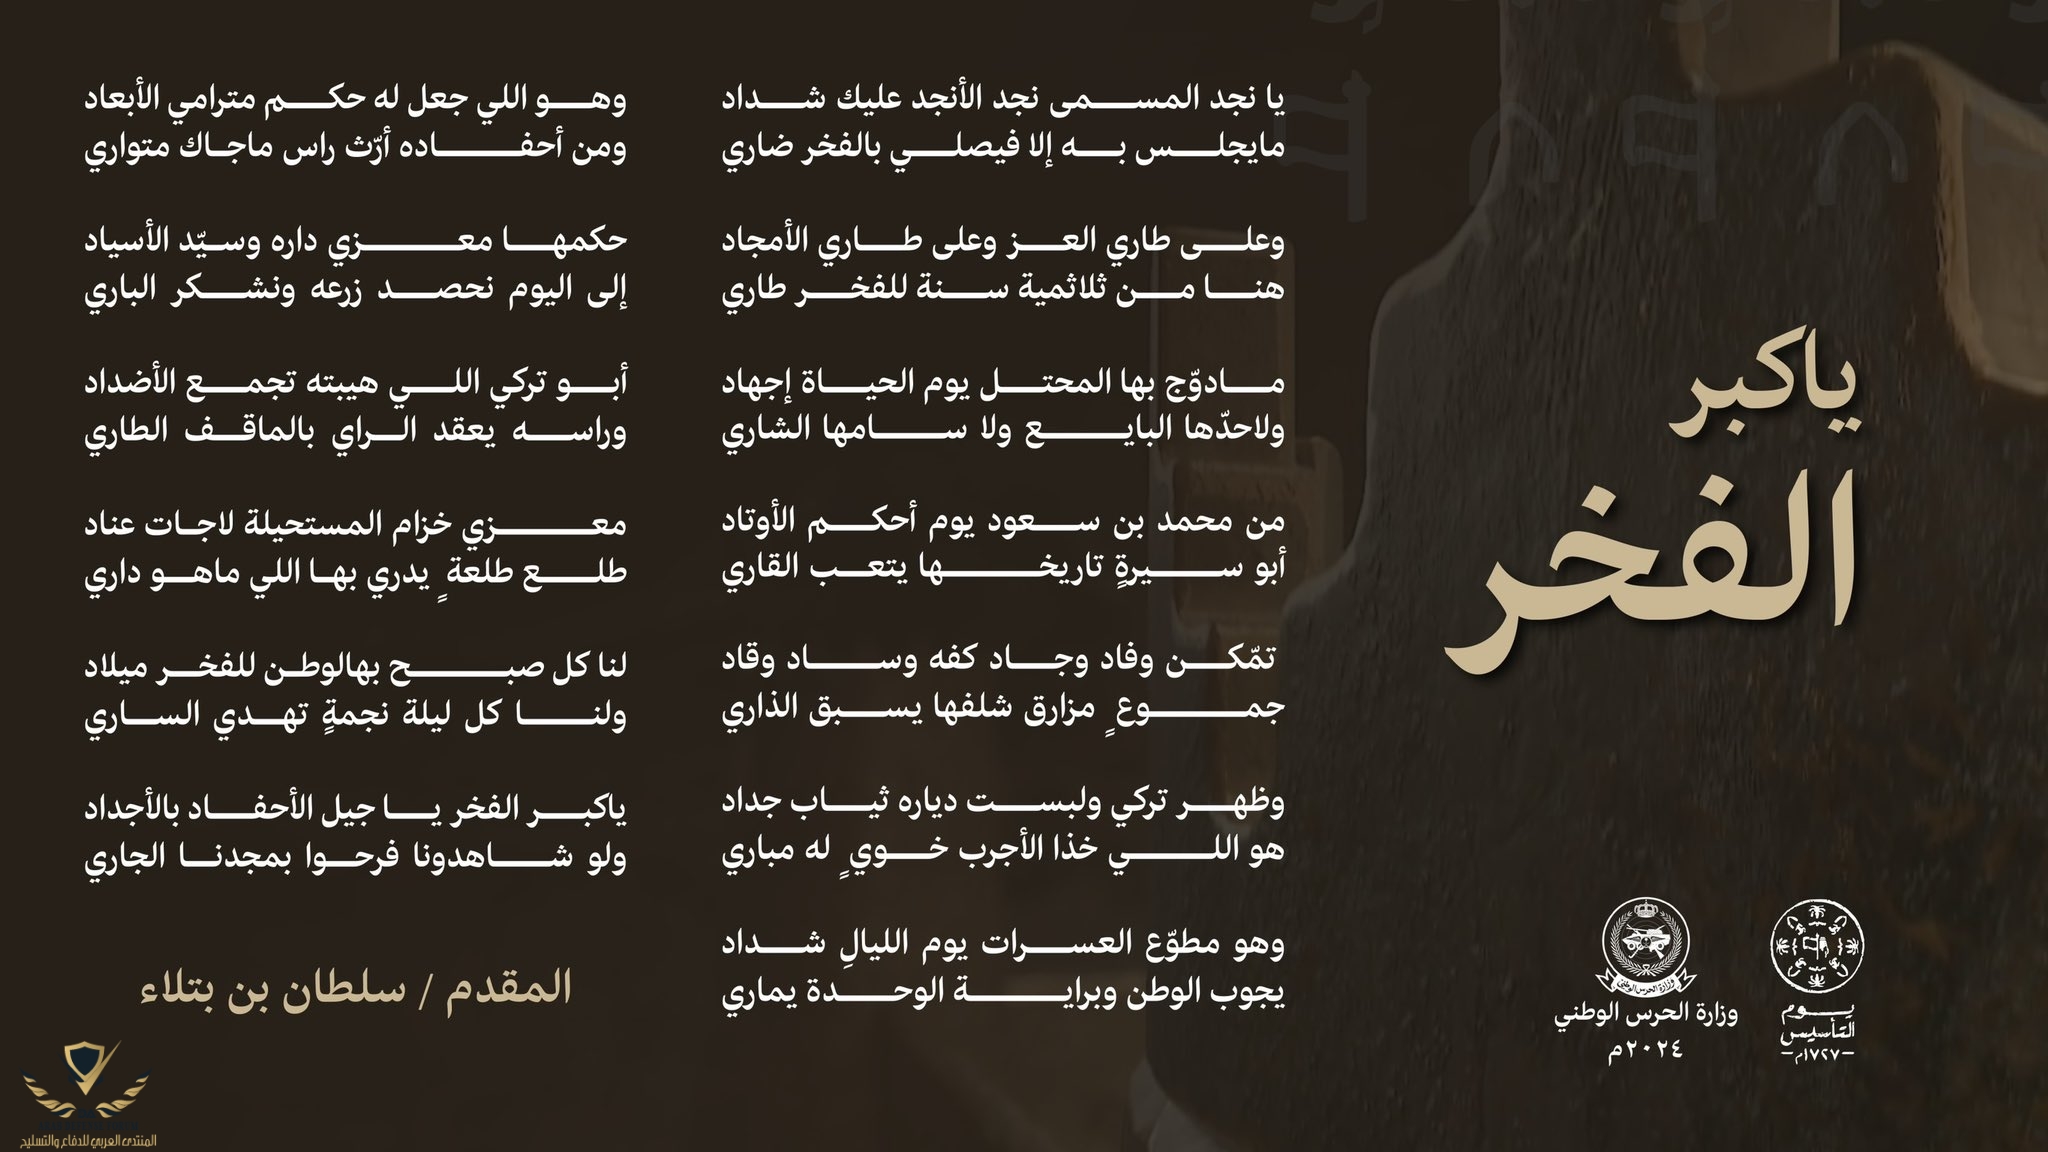 ياكبر
الفخر
يا نجد المسمى نجد الأنجد عليك شداد
مايجلس به إلا فيصلي بالفخر ضاري
وعلى طاري العز وعلى طاري الأمجاد
هنا من ثلاثمية سنة للفخر طاري
مادوّج بها المحتل يوم الحياة إجهاد
ولاحدّها البايع ولا سامها الشاري
من محمد بن سعود يوم أحكم الأوتاد
أبو سيرةٍ تاريخها يتعب القاري
تمّكن وفاد وجاد كفه وساد وقاد
جموعٍ مزارق شلفها يسبق الذاري
وظهر تركي ولبست دياره ثياب جداد
هو اللي خذا الأجرب خويٍ له مباري
وهو مطوّع العسرات يوم الليالِ شداد
يجوب الوطن وبراية الوحدة يماري
وهو اللي جعل له حكم مترامي الأبعاد
ومن أحفاده أرّث راس ماجاك متواري
حكمها معزي داره وسيّد الأسياد
إلى اليوم نحصد زرعه ونشكر الباري
أبو تركي اللي هيبته تجمع الأضداد
وراسه يعقد الراي بالماقف الطاري
معزي خزام المستحيلة لاجات عناد
طلع طلعةٍ يدري بها اللي ماهو داري
لنا كل صبح بهالوطن للفخر ميلاد
ولنا كل ليلة نجمةٍ تهدي الساري
ياكبر الفخر يا جيل الأحفاد بالأجداد
ولو شاهدونا فرحوا بمجدنا الجاري
المقدم / سلطان بن بتلاء
يوم
التأسيس
١٧٢٧م
وزارة الحرس الوطني
وزارة الحرس الوطني
٢٠٢٤م
المنتدى العربي للدفاع والتسليح